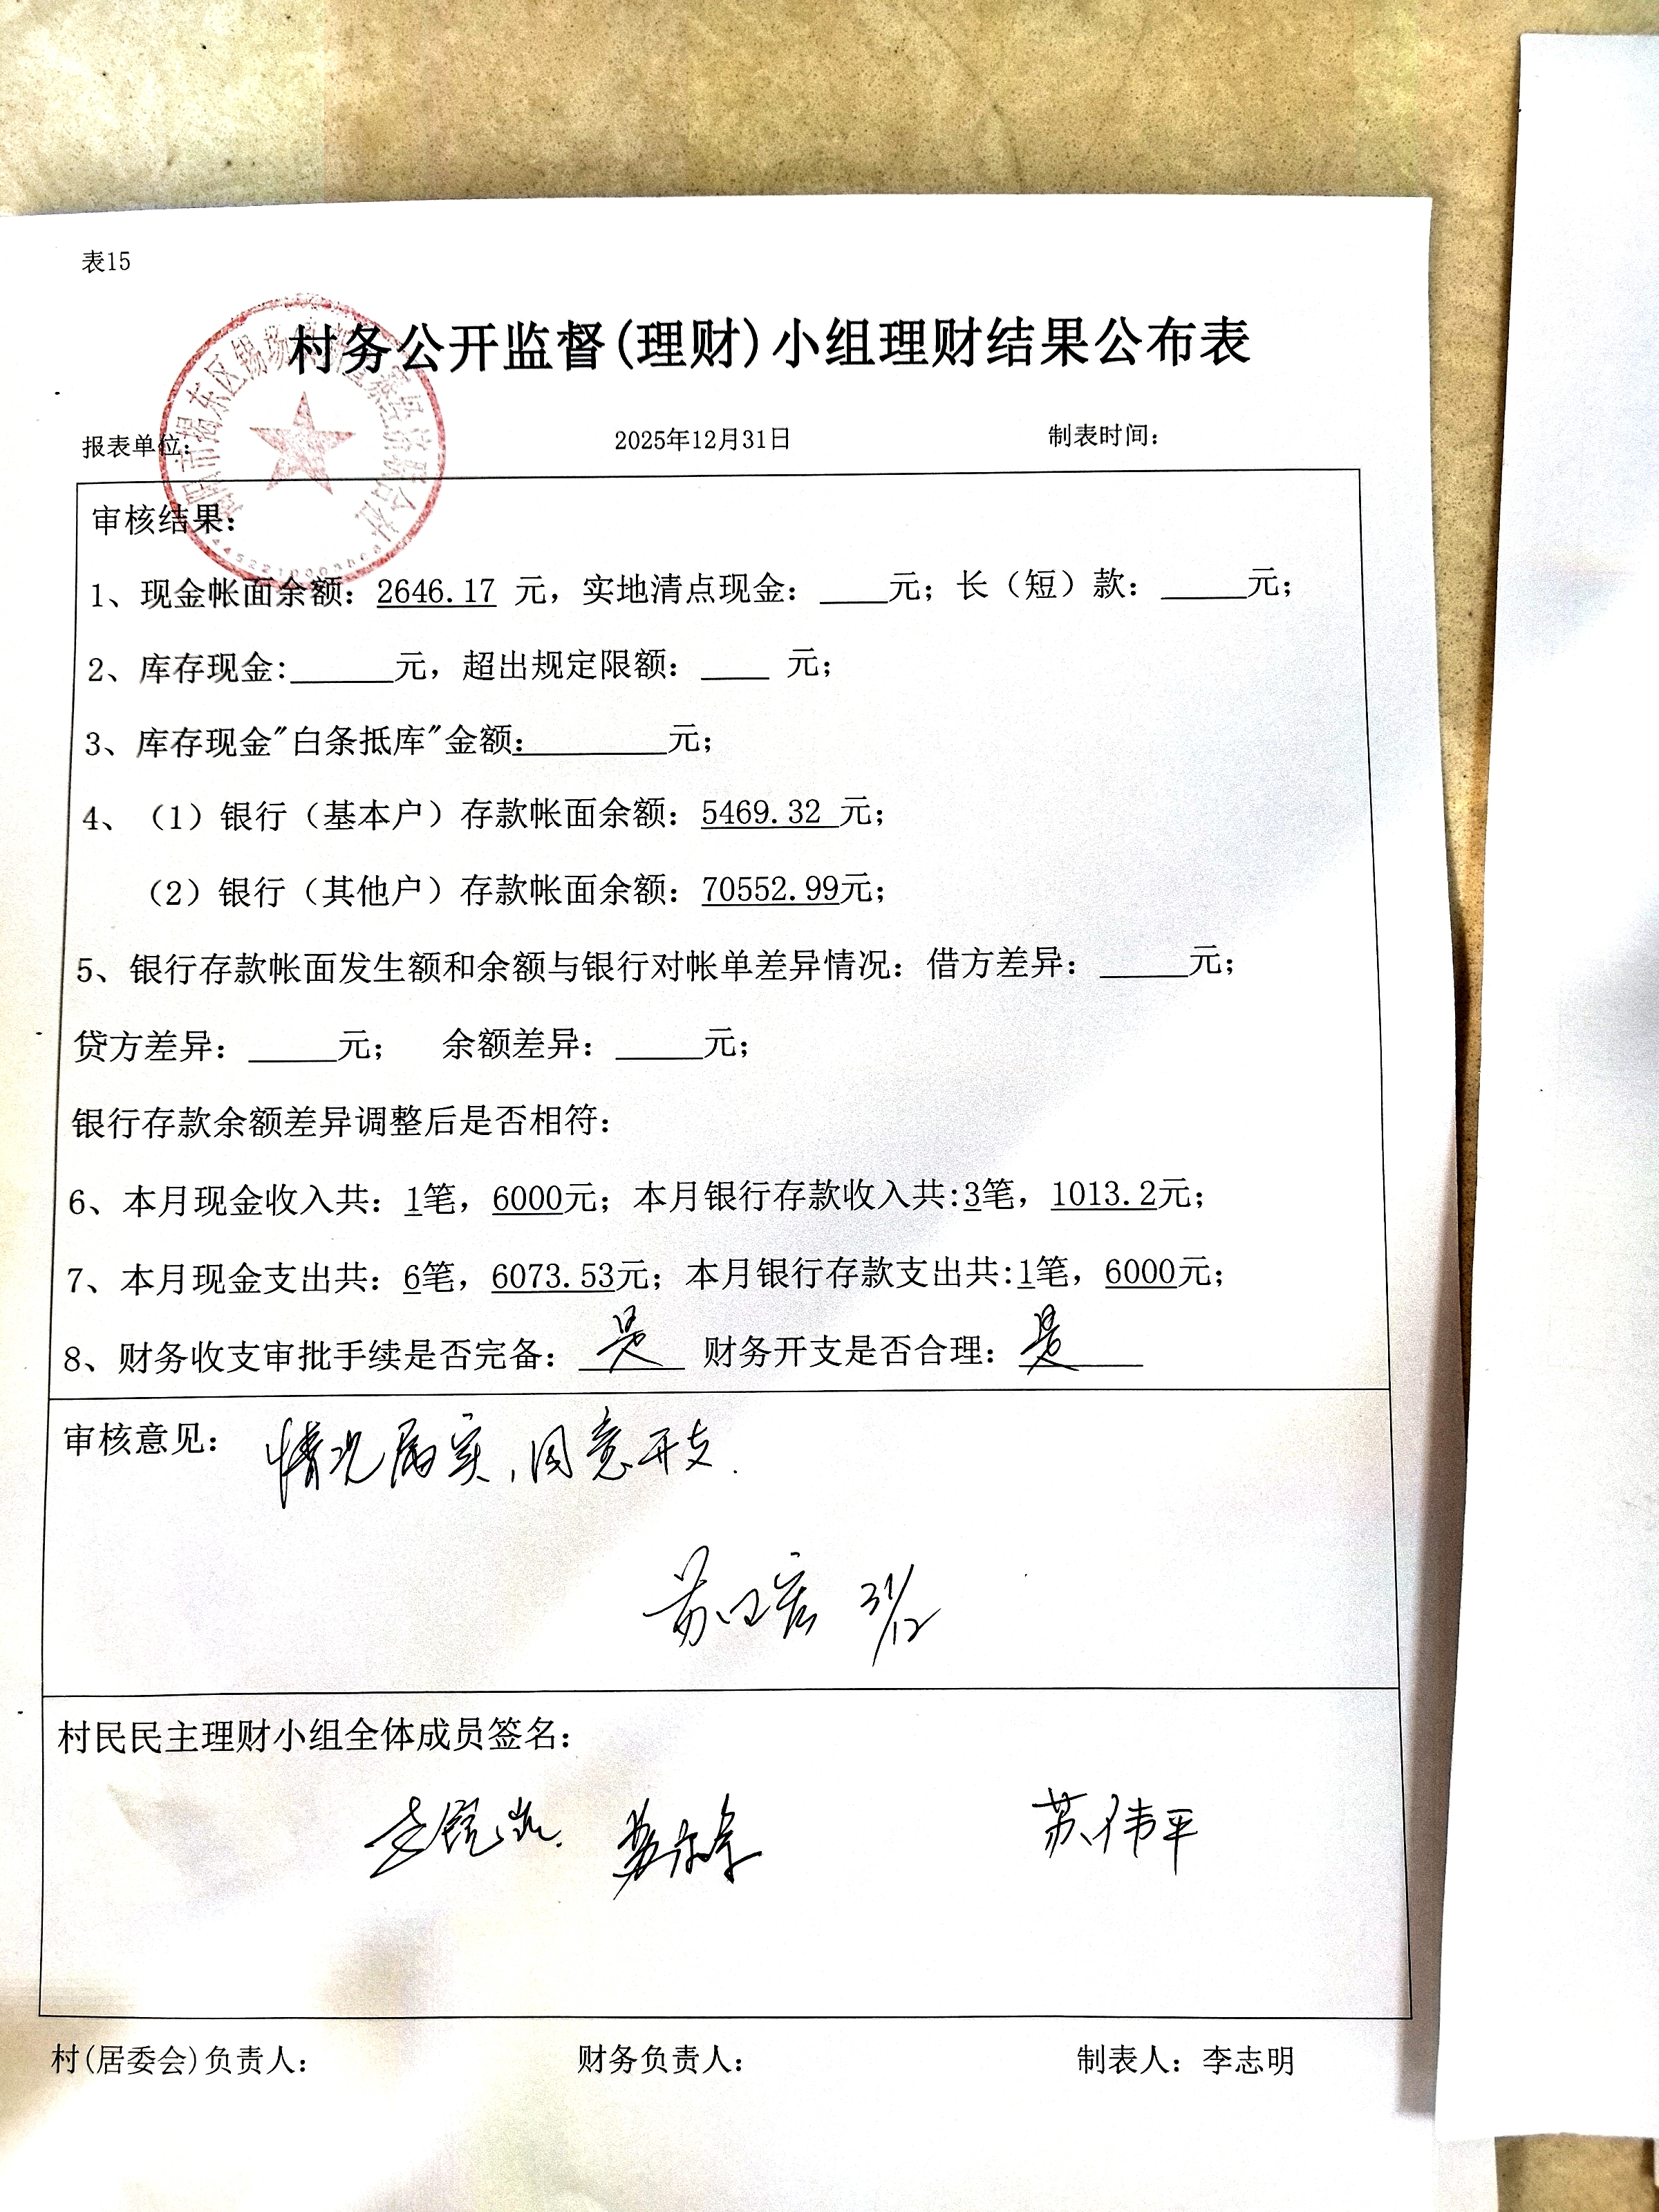 表15
村务公开监督(理财)小组理财结果公布表
报表单位： 2025年12月31日 制表时间：
审核结果：
1、现金帐面余额：2646.17 元，实地清点现金：____元；长（短）款：_____元；
2、库存现金:______元，超出规定限额：____ 元；
3、库存现金"白条抵库"金额:________元；
4、（1）银行（基本户）存款帐面余额：5469.32 元；
（2）银行（其他户）存款帐面余额：70552.99元；
5、银行存款帐面发生额和余额与银行对帐单差异情况：借方差异：_____元；
贷方差异：_____元； 余额差异：_____元；
银行存款余额差异调整后是否相符：
6、本月现金收入共：1笔，6000元；本月银行存款收入共:3笔，1013.2元；
7、本月现金支出共：6笔，6073.53元；本月银行存款支出共:1笔，6000元；
8、财务收支审批手续是否完备：是 财务开支是否合理：是
审核意见：情况属实，同意开支.
31/12
村民民主理财小组全体成员签名：
苏伟平
村(居委会)负责人： 财务负责人： 制表人：李志明